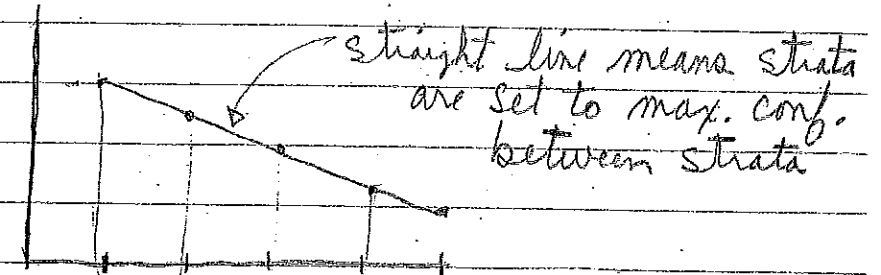 straight line means strata
are set to max. conf.
between strata